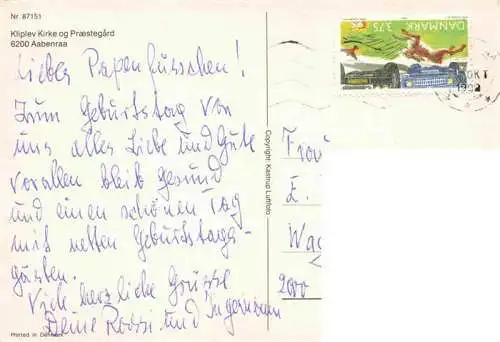 Nr. 87151
Kliplev Kirke og Præstegård
6200 Aabenraa
Liebes Papenfusschen!
Zum Geburtstag von
uns alles Liebe und Gute
vorallen bleib gesund
und einen schönen Tag
mit netten Geburtstags-
gästen.
Viele herzliche Grüsse
Deine Rossi und Ingermann
Printed in Denmark
Copyright: Kastrup Luftfoto
DANMARK
3.75
OKT
Frau
E.
2000